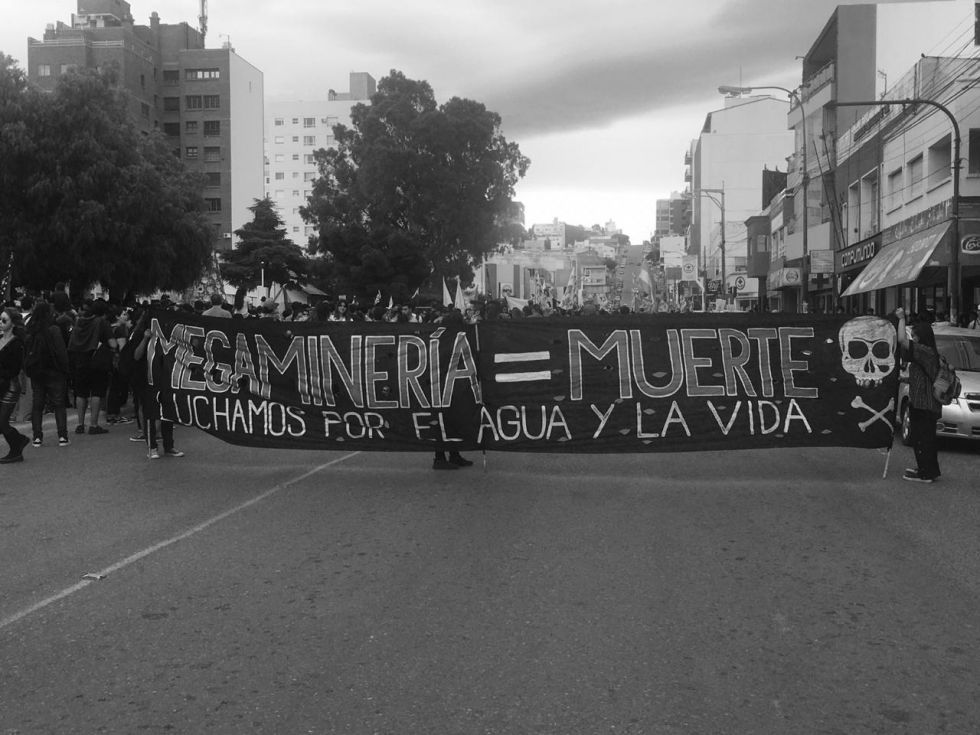 MEGAMINERÍA = MUERTE
LUCHAMOS POR EL AGUA Y LA VIDA
COMPUMUNDO